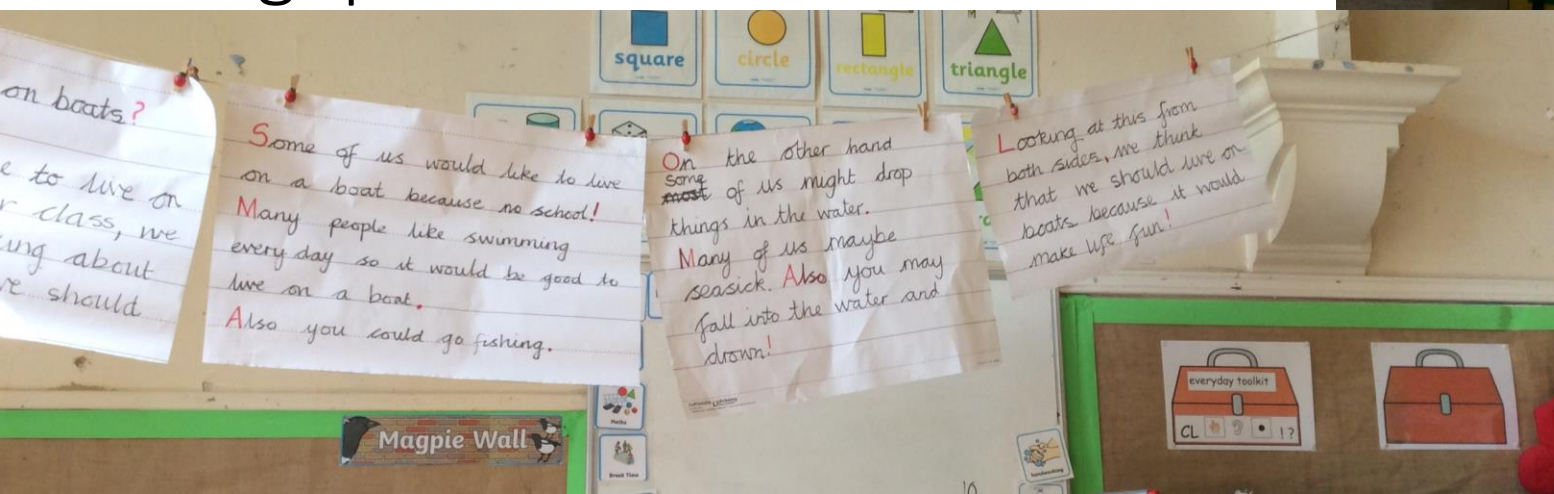 square
circle
rectangle
triangle
on boats?
e to live on
r class, we
ing about
e should
Some of us would like to live
on a boat because no school!
Many people like swimming
every day so it would be good to
live on a boat.
Also you could go fishing.
On the other hand
some
most of us might drop
things in the water.
Many of us maybe
seasick. Also you may
fall into the water and
drown!
Looking at this from
both sides, we think
that we should live on
boats because it would
make life fun!
Magpie Wall
Maths
Break Time
everyday toolkit
CL !?
10